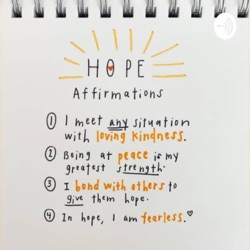 HOPE
Affirmations
1 I meet any situation
with loving kindness.
2 Being at peace is my
greatest strength.
3 I bond with others to
give them hope.
4 In hope, I am fearless.